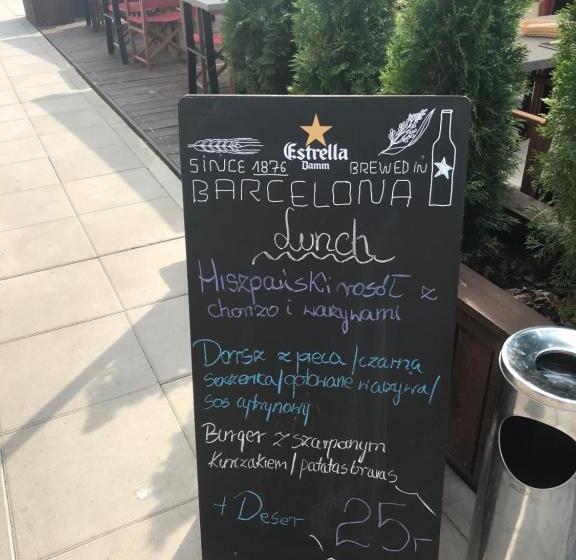 Estrella
Damm
SINCE 1876 BREWED IN
BARCELONA
Lunch
Hiszpański rosół z
chorizo i warzywami
Dorsz z pieca / czarna
soczewica / gotowane warzywa /
sos cytrynowy
Burger z szarpanym
kurczakiem / patatas bravas
+ Deser 25,-